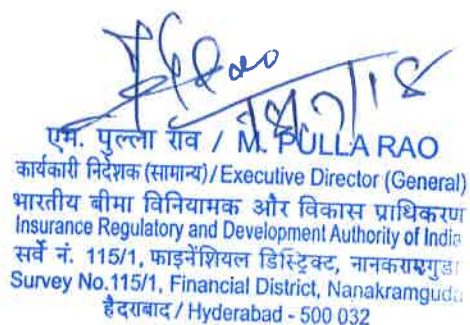 एम. पुल्ला राव / M. PULLA RAO
कार्यकारी निदेशक (सामान्य) / Executive Director (General)
भारतीय बीमा विनियामक और विकास प्राधिकरण
Insurance Regulatory and Development Authority of India
सर्वे नं. 115/1, फाइनेंशियल डिस्ट्रिक्ट, नानकरामगुडा
Survey No.115/1, Financial District, Nanakramguda
हैदराबाद / Hyderabad - 500 032